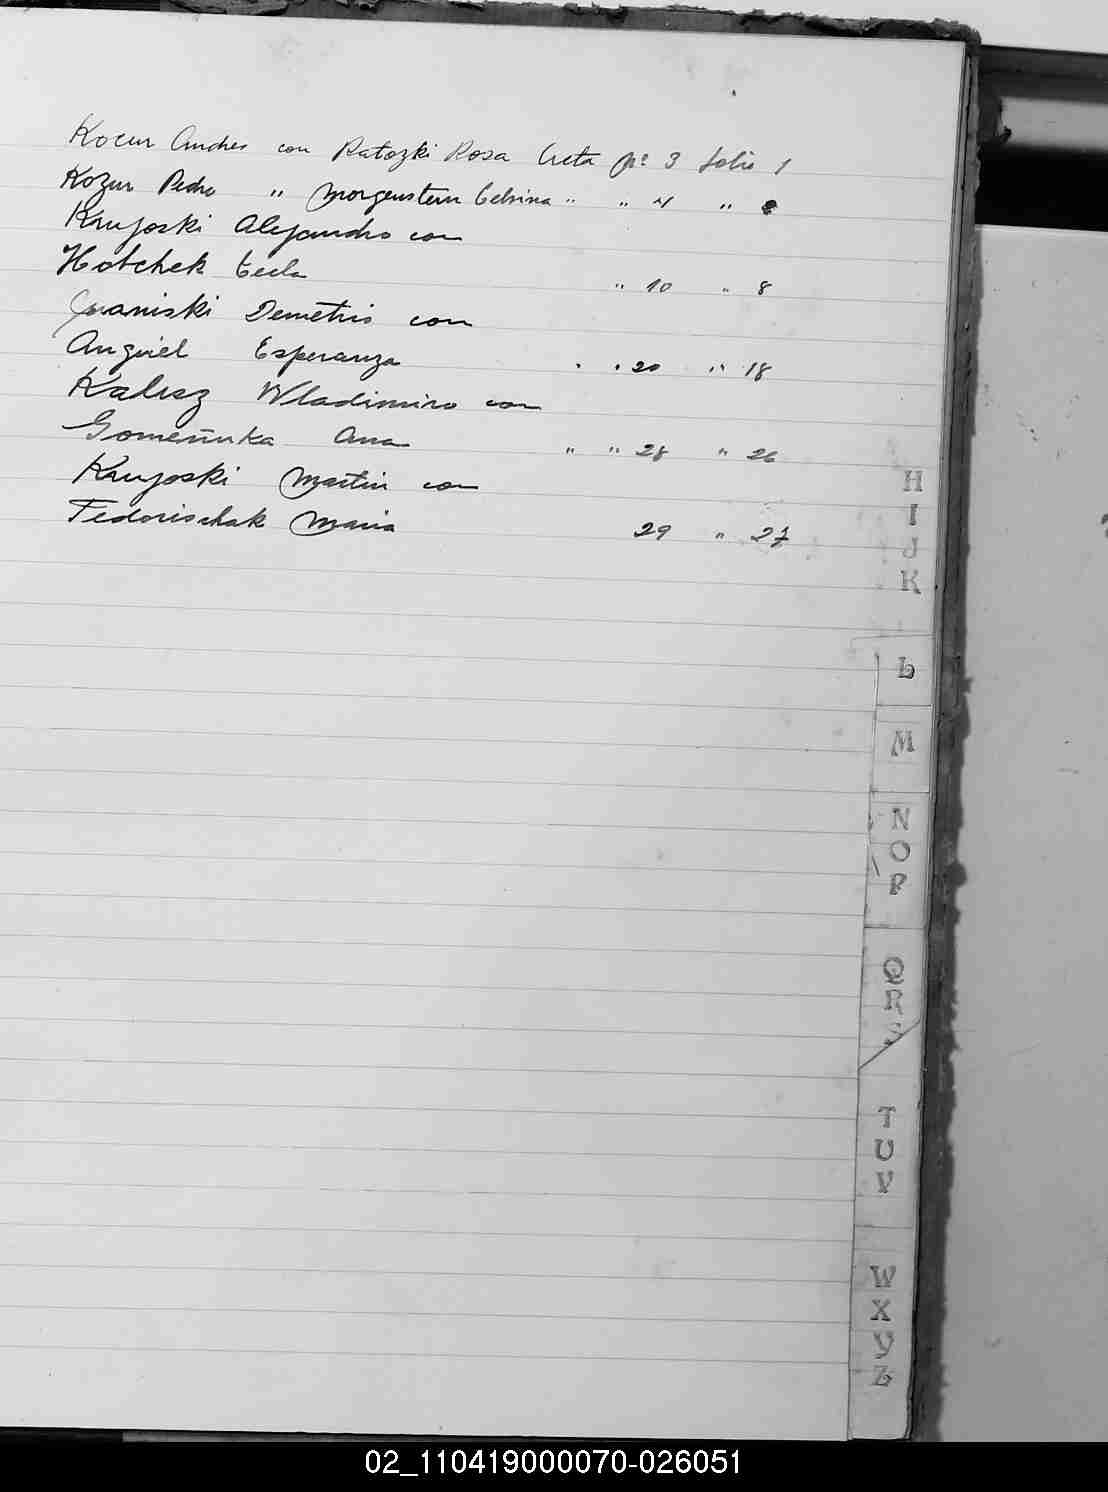 Kocur Andres con Ratozki Rosa Acta Nº 3 folio 1
Kozur Pedro " Morgenstern " " 4 "
Krujoski Alejandro con
Hotchek Tecla " 10 " 8
Juaniski Demetrio con
Anguiel Esperanza " " 20 " 18
Kalisz Wladimiro con
Gomeñuka Ana " " 28 " 26
Krujoski Martin con
Fedorischak Maria 29 " 27
H
I
J
K
L
M
N
O
P
Q
R
S
T
U
V
W
X
Y
Z
02_110419000070-026051